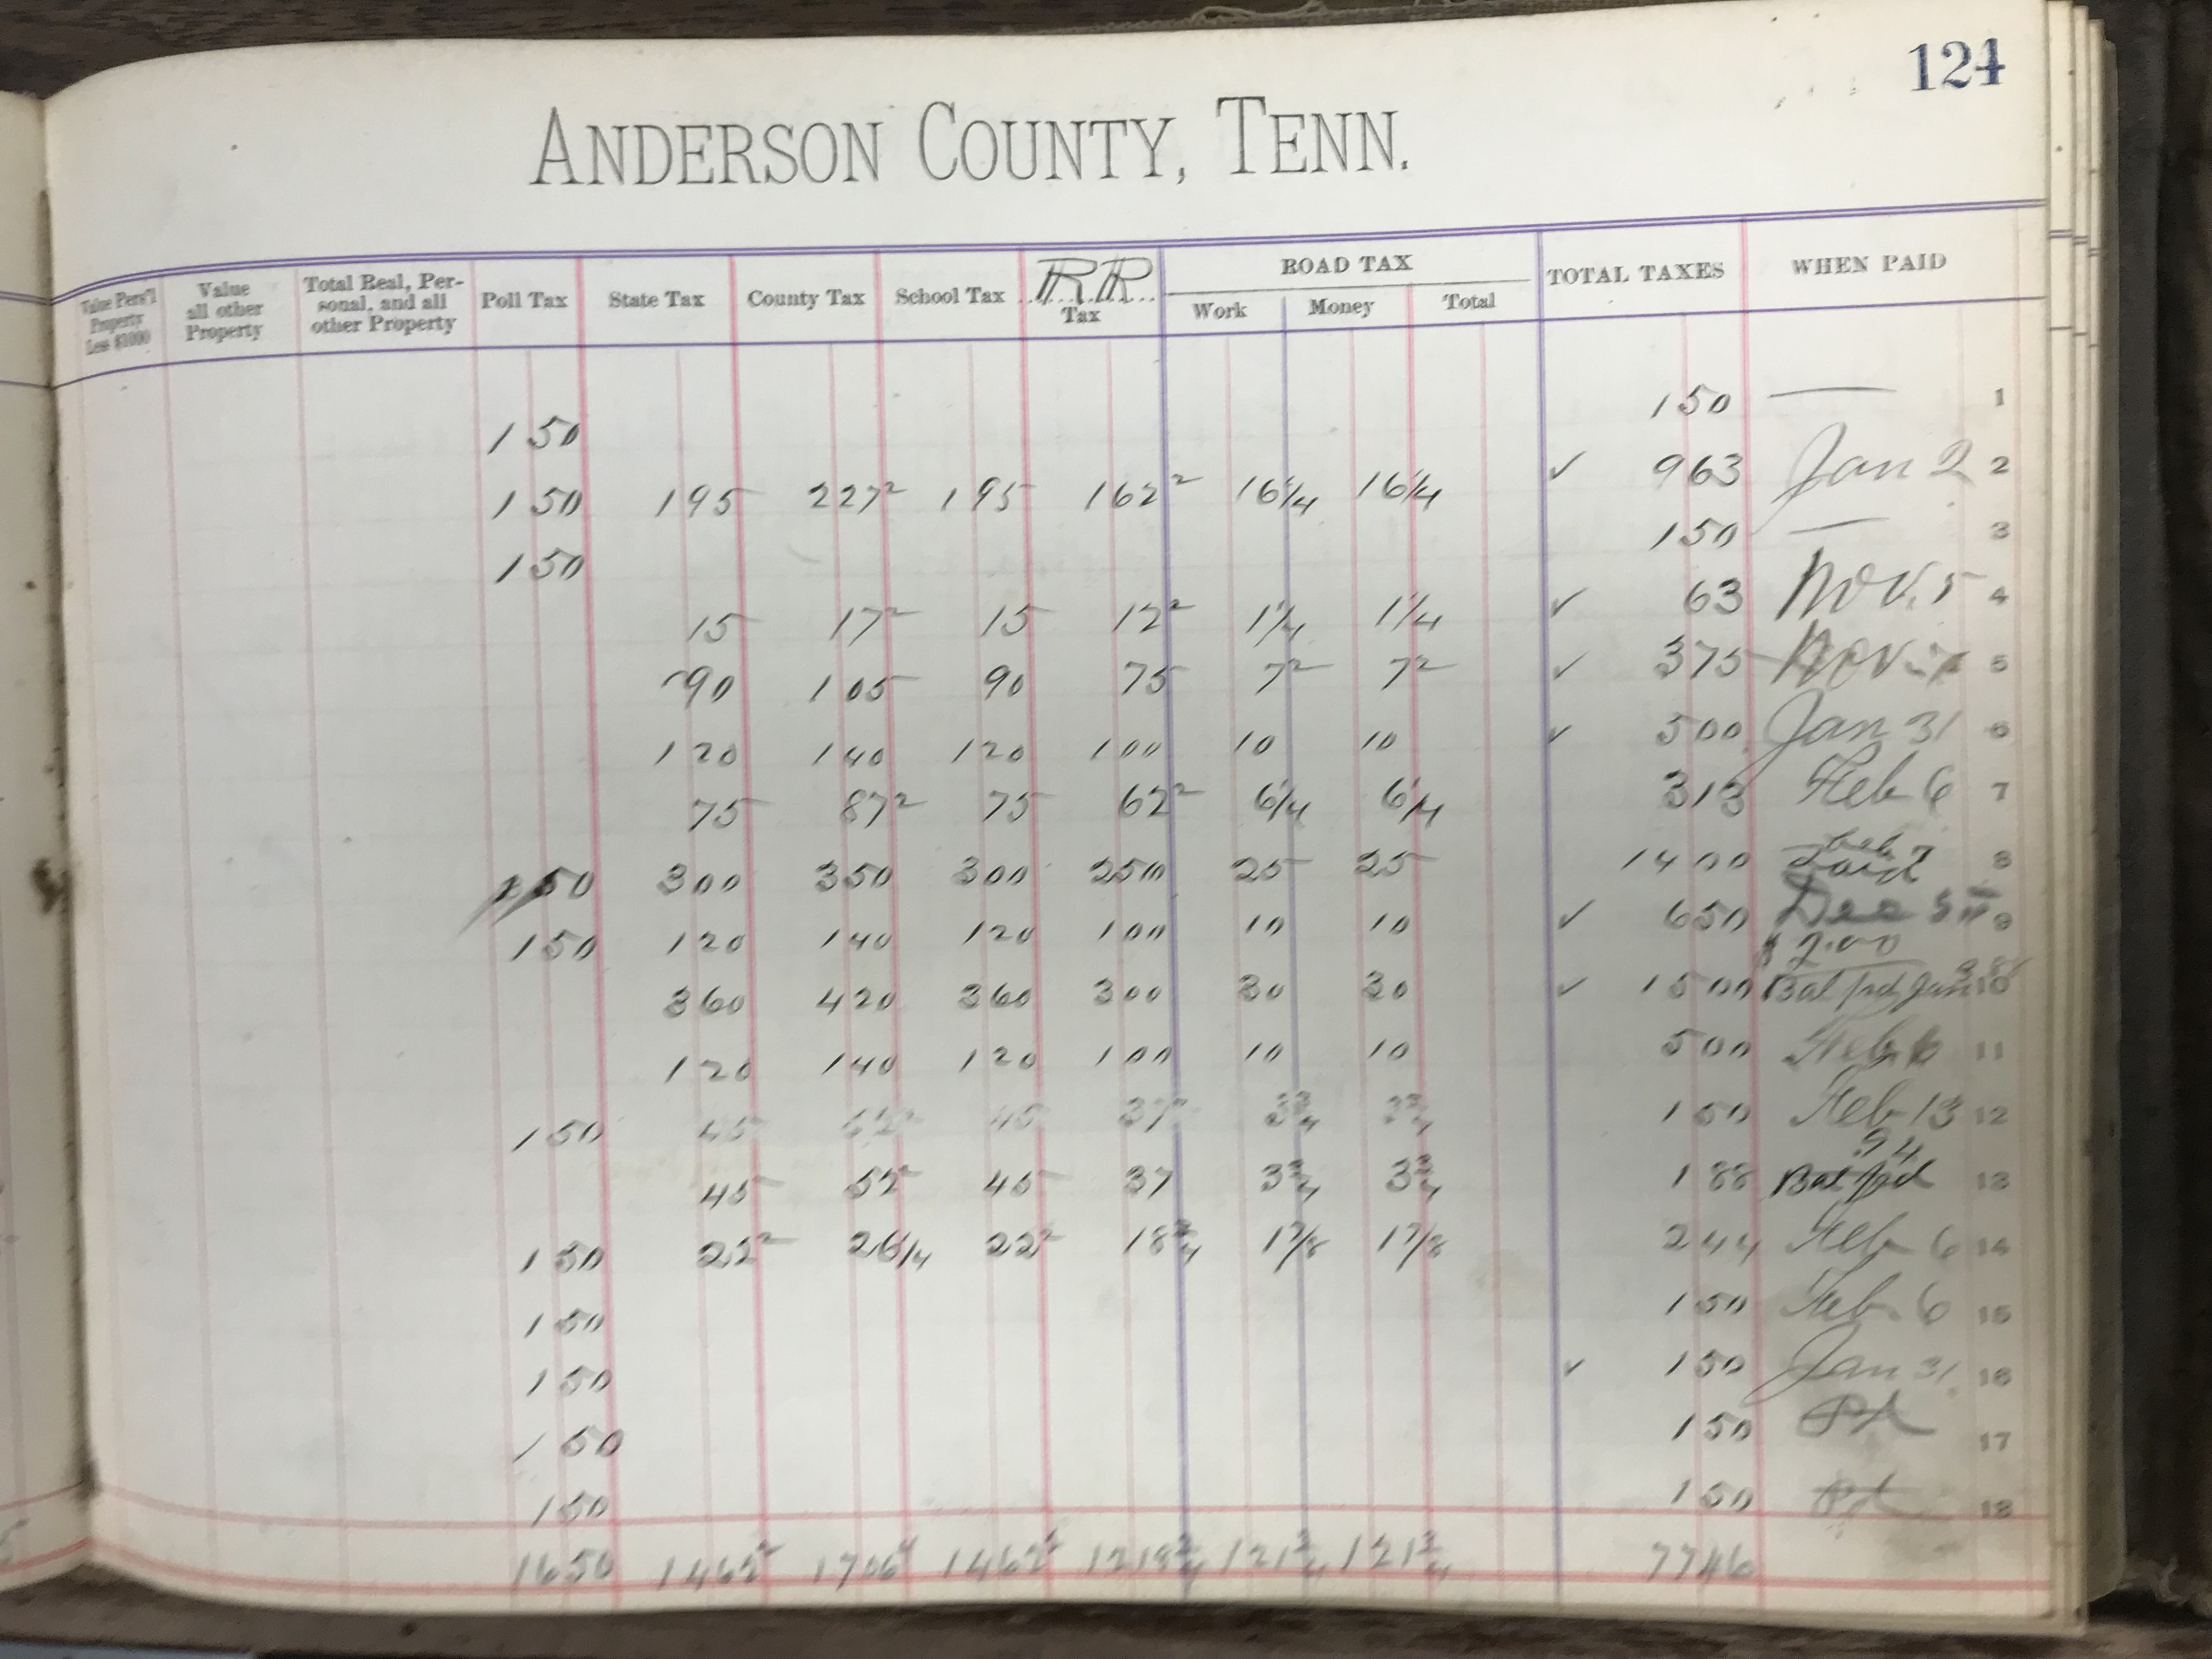 124
ANDERSON COUNTY, TENN.
Value Pers'l Property Less $1000 Value all other Property Total Real, Personal, and all other Property Poll Tax State Tax County Tax School Tax RR Tax ROAD TAX Work Money Total TOTAL TAXES WHEN PAID
150 150 — 1
150 195 227² 195 162² 16¼ 16¼ ✓ 963 Jan 2 2
150 150 — 3
15 17² 15 12² 1¼ 1¼ ✓ 63 Nov. 5 4
90 105 90 75 7² 7² ✓ 375 Nov 5
120 140 120 100 10 10 ✓ 500 Jan 31 6
75 87² 75 62² 6¼ 6¼ 313 Feb 6 7
150 300 350 300 250 25 25 1400 Paid 8
150 120 140 120 100 10 10 ✓ 650 Dec 9
$ 2.00
360 420 360 300 30 30 ✓ 1500 Bal pd Jan 10
120 140 120 100 10 10 500 Feb 6 11
150 45 52² 45 37² 3¾ 3¾ 150 Feb 13 12
.94
45 52² 45 37 3¾ 3¾ 188 Bal pd 13
150 22² 26¼ 22² 18¾ 1⅞ 1⅞ 244 Feb 6 14
150 150 Feb. 6 15
150 ✓ 150 Jan 31 16
150 150 17
150 150 18
1650 1462² 1706¼ 1462² 1218¾ 121¾ 121¾ 7746